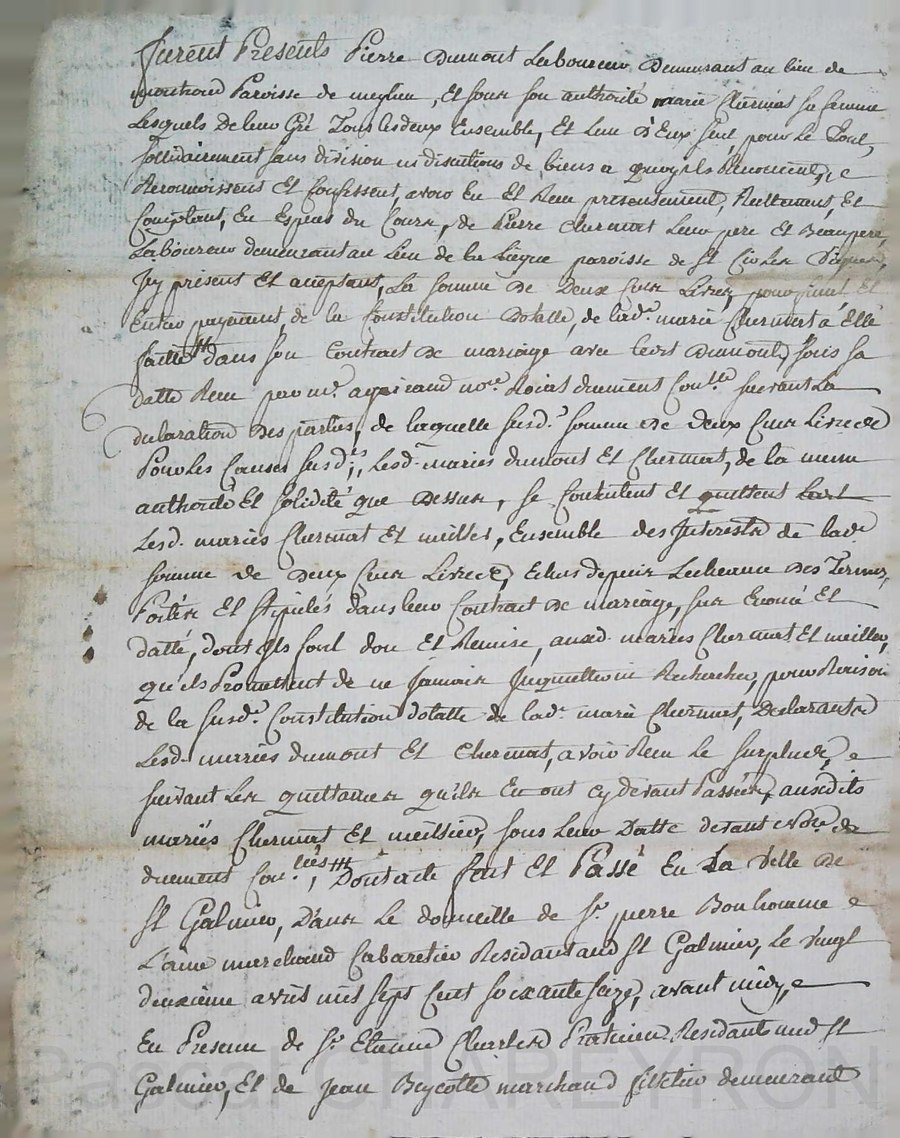 Furent Presents Pierre Dumont Laboureur Demeurant au lieu de
montrond Paroisse de, Et sous son authorité marie Chermat sa femme
Lesquels De leur Gré Tous lesdeux Ensemble, Et L'un d'Eux seul, pour Le Tout,
sollidairement sans division ni discutions de biens a quoy ils Renoncent,
Reconnoissent Et Confessent, avoir Eu Et Reçu presentement, Réellement, Et
Comptant, En Espèces du Cours, de Pierre Chermat Leur père Et Beaupère,
Laboureur demeurant au Lieu de la Liegue paroisse de St
Icy présent Et acceptant, La somme de Deux Cent Livres, Et
Entier payement, de la Constitution Dotalle, de lad.e marie Chermat a Elle
faitte dans son Contrat de mariage avec led.t Dumont, sous sa
datte Reçu par m.e no.re Roial duement Con.lé suivant La
déclaration des parties, de laquelle susd.e somme de deux Cent Livres
Pour Les Causes susd.es, Lesd. mariés dumont Et Chermat, de la meme
authorité Et solidité que Dessus, se Contentent Et quittent
Lesd. mariés Chermat Et meillier, Ensemble des Interests de lad.e
somme de Deux Cent Livres, Echus depuis Lecheance Des Termes,
Portés Et stipulés dans leur Contrat de mariage, sus Enoncé Et
datté, dont ils font don Et Remise, auxd. mariés Chermat Et meillier,
qu'ils Promettent de ne Jamais Inquietter ni Rechercher, pour Raison
de la susd.e Constitution dotalle de lad.e marie Chermat, Declarants
Lesd. marriés dumont Et Chermat, avoir Reçu le surplus,
suivant Les quittances qu'ils En ont cy devant Passées, ausdits
mariés Chermat Et meillier, sous Leur Datte devant
duement Con.lées, Dont acte fait Et Passé En La Ville De
St Galmier, Dans Le domicille de S.r pierre Bonhomme
L'ainé marchand Cabaretier Residant aud St Galmier, Le vingt
deuxième avril mil sept Cent soixante seize, avant midy,
En Presence de S.r Etienne Charles Praticien Residant aud St
Galmier, Et de Jean marchand demeurant
Pascal CHAREYRON